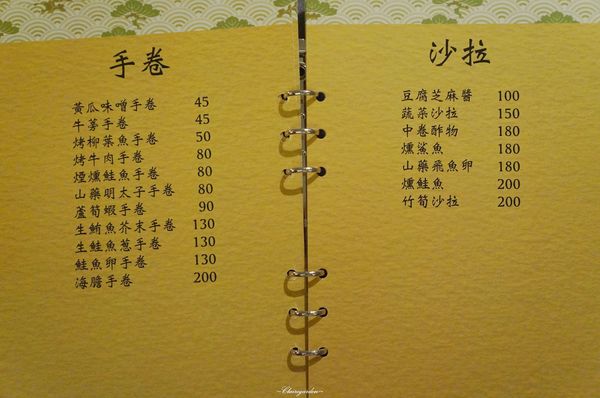 手卷
黃瓜味噌手卷 45
牛蒡手卷 45
烤柳葉魚手卷 50
烤牛肉手卷 80
煙燻鮭魚手卷 80
山藥明太子手卷 80
蘆筍蝦手卷 90
生鮪魚芥末手卷 130
生鮭魚蔥手卷 130
鮭魚卵手卷 130
海膽手卷 200
沙拉
豆腐芝麻醬 100
蔬菜沙拉 150
中卷酢物 180
燻鯊魚 180
山藥飛魚卵 180
燻鮭魚 200
竹筍沙拉 200
~Clairegarden~